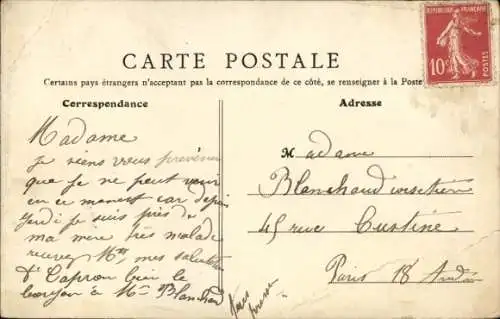 RÉPUBLIQUE FRANÇAISE
10c
POSTES
CARTE POSTALE
Certains pays étrangers n'acceptent pas la correspondance de ce côté, se renseigner à la Poste
Correspondance
Adresse
Madame
je viens vous prévenir
que je ne peut venir
en ce moment car depuis
Jeudi je suis près de
ma mère très malade
recevez Mme mes salutation
le
bonjour à Mr Blanchard
Madame
Blanchaud
45 rue Custine
Paris 18